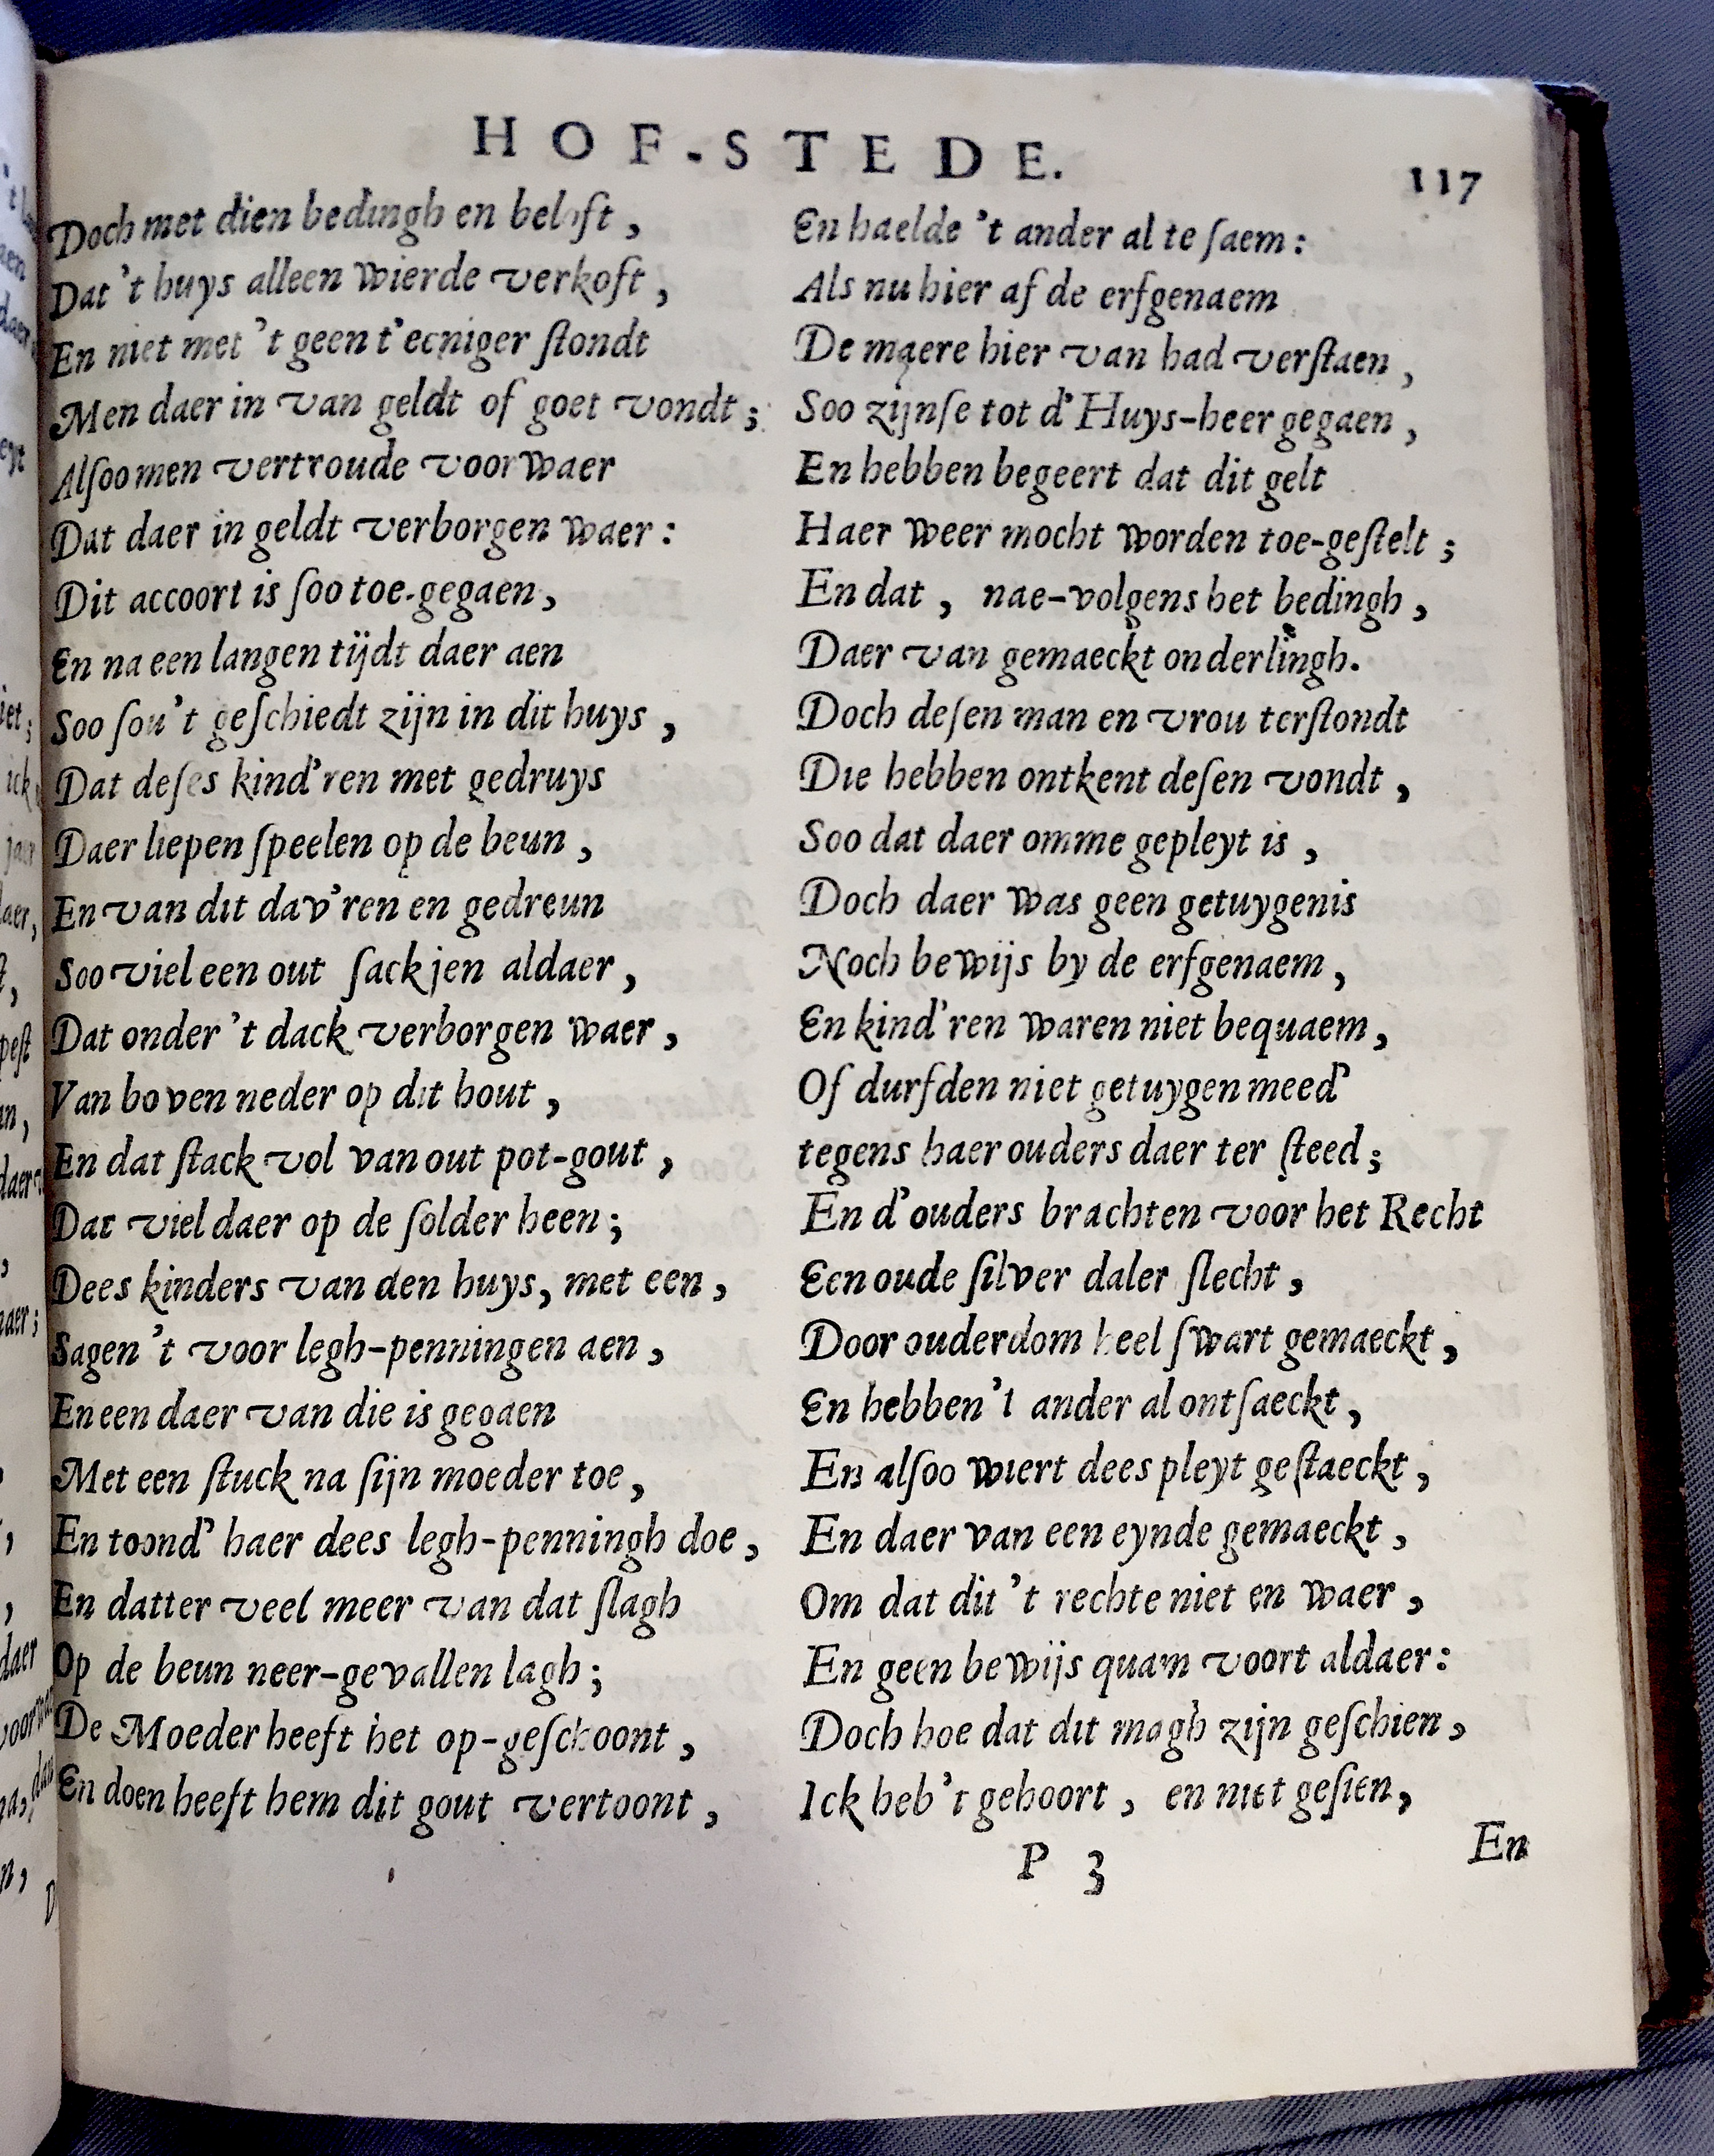 HOF-STEDE.
117
Doch met dien bedingh en beloft,
Dat 't huys alleen wierde verkoft,
En niet met 't geen t'eeniger ſtondt
Men daer in van geldt of goet vondt;
Alſoo men vertroude voorwaer
Dat daer in geldt verborgen waer:
Dit accoort is ſoo toe-gegaen,
En na een langen tijdt daer aen
Soo ſou't geſchiedt zijn in dit huys,
Dat deſes kind'ren met gedruys
Daer liepen ſpeelen op de beun,
En van dit dav'ren en gedreun
Soo viel een out ſackjen aldaer,
Dat onder 't dack verborgen waer,
Van boven neder op dit hout,
En dat ſtack vol van out pot-gout,
Dat viel daer op de ſolder heen;
Dees kinders van den huys, met een,
Sagen 't voor legh-penningen aen,
En een daer van die is gegaen
Met een ſtuck na ſijn moeder toe,
En toond' haer dees legh-penningh doe,
En datter veel meer van dat ſlagh
Op de beun neer-gevallen lagh;
De Moeder heeft het op-geſchoont,
En doen heeft hem dit gout vertoont,
En haelde 't ander al te ſaem:
Als nu hier af de erfgenaem
De maere hier van had verſtaen,
Soo zijnſe tot d'Huys-heer gegaen,
En hebben begeert dat dit gelt
Haer weer mocht worden toe-geſtelt;
En dat, nae-volgens het bedingh,
Daer van gemaeckt onderlingh.
Doch deſen man en vrou terſtondt
Die hebben ontkent deſen vondt,
Soo dat daer omme gepleyt is,
Doch daer was geen getuygenis
Noch bewijs by de erfgenaem,
En kind'ren waren niet bequaem,
Of durfden niet getuygen meed'
tegens haer ouders daer ter ſteed;
En d'ouders brachten voor het Recht
Een oude ſilver daler ſlecht,
Door ouderdom heel ſwart gemaeckt,
En hebben't ander al ontſaeckt,
En alſoo wiert dees pleyt geſtaeckt,
En daer van een eynde gemaeckt,
Om dat dit 't rechte niet en waer,
En geen bewijs quam voort aldaer:
Doch hoe dat dit magh zijn geſchien,
Ick heb't gehoort, en niet geſien,
P 3
En